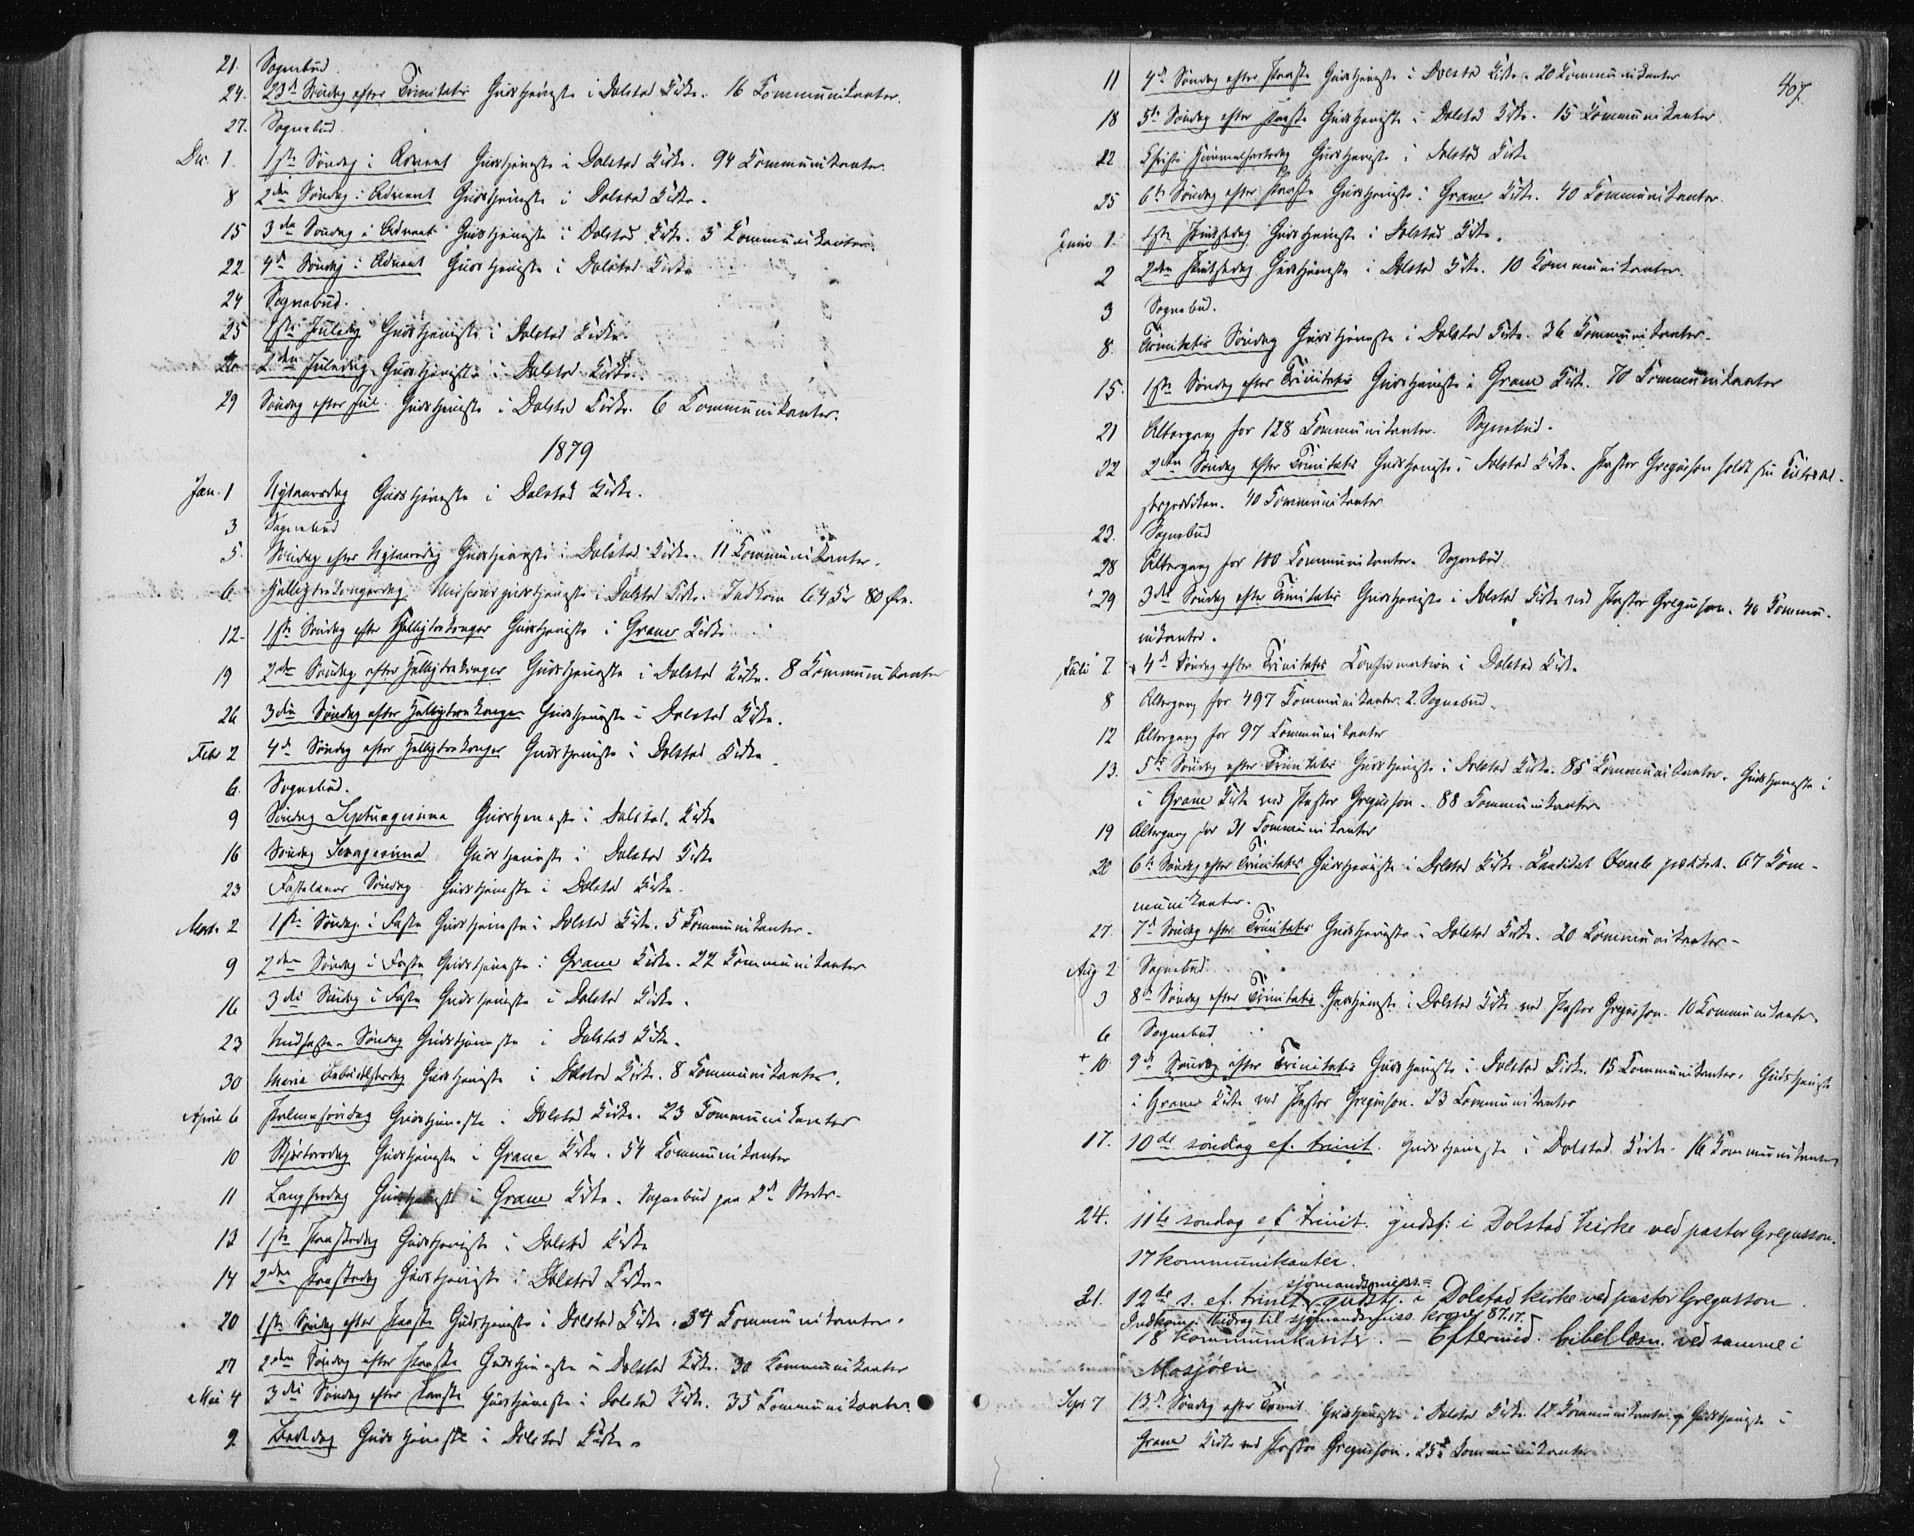 21. Sognebud.
24. 23de Søndag efter Trinitatis Gudstjeneste i Dolstad Kirke. 16 Kommunikanter.
27. Sognebud.
Dec. 1. 1ste Søndag i Advent Gudstjeneste i Dolstad Kirke. 94 Kommunikanter.
8 2den Søndag i Advent Gudstjeneste i Dolstad Kirke.
15 3die Søndag i Advent Gudstjeneste i Dolstad Kirke. 5 Kommunikanter.
22. 4de Søndag i Advent Gudstjeneste i Dolstad Kirke
24 Sognebud.
25 1ste Juledag Gudstjeneste i Dolstad Kirke.
26 2den Juledag Gudstjeneste i Dolstad Kirke.
29 Søndag efter Jul. Gudstjeneste i Dolstad Kirke. 6 Kommunikanter.
1879
Jan. 1 Nytaarsdag Gudstjeneste i Dolstad Kirke.
3 Sognebud
5. Søndag efter Nytaarsdag Gudstjeneste i Dolstad Kirke. 11 Kommunikanter.
6 Helligtrekongersdag Missionsgudstjeneste i Dolstad Kirke. Indkom 64 Kr 80 Øre.
12. 1ste Søndag efter Helligtrekonger Gudstjeneste i Grane Kirke
19 2den Søndag efter Helligtrekonger Gudstjeneste i Dolstad Kirke. 8 Kommunikanter
26 3die Søndag efter Helligtrekonger Gudstjeneste i Dolstad Kirke.
Febr 2 4de Søndag efter Helligtrekonger Gudstjeneste i Dolstad Kirke
6. Sognebud.
9 Søndag Septuagesima Gudstjeneste i Dolstad Kirke
16 Søndag Sexagesima Gudstjeneste i Dolstad Kirke
23 Fastelavns Søndag Gudstjeneste i Dolstad Kirke.
Marts 2 1ste Søndag i Faste Gudstjeneste i Dolstad Kirke. 5 Kommunikanter.
9 2den Søndag i Faste Gudstjeneste i Grane Kirke. 22 Kommunikanter
16 3die Søndag i Faste Gudstjeneste i Dolstad Kirke.
23 Midfaste-Søndag Gudstjeneste i Dolstad Kirke.
30 Maria Bebudelsesdag Gudstjeneste i Dolstad Kirke. 8 Kommunikanter.
April 6 Palmesøndag Gudstjeneste i Dolstad Kirke. 23 Kommunikanter
10 Skjærtorsdag Gudstjeneste i Grane Kirke. 54 Kommunikanter
11 Langfredag Gudstjeneste i Grane Kirke. Sognebud paa 2de Steder.
13 1ste Paaskedag Gudstjeneste i Dolstad Kirke
14 2den Paaskedag Gudstjeneste i Dolstad Kirke.
20 1ste Søndag efter Paaske Gudstjeneste i Dolstad Kirke. 34 Kommunikanter.
27 2den Søndag efter Paaske Gudstjeneste i Dolstad Kirke. 30 Kommunikanter
Mai 4 3die Søndag efter Paaske Gudstjeneste i Dolstad Kirke. 35 Kommunikanter.
9. Bededag Gudstjeneste i Dolstad Kirke.
407.
11 4de Søndag efter Paaske Gudstjeneste i Dolstad Kirke. 20 Kommunikanter
18 5te Søndag efter Paaske Gudstjeneste i Dolstad Kirke. 15 Kommunikanter.
22 Christi Himmelfartsdag Gudstjeneste i Dolstad Kirke
25 6te Søndag efter Paaske Gudstjeneste i Grane Kirke. 40 Kommunikanter.
Juni 1. 1ste Pintsedag Gudstjeneste i Dolstad Kirke.
2 2den Pintsedag Gudstjeneste i Dolstad Kirke. 10 Kommunikanter.
3 Sognebud.
8. Trinitatis Søndag Gudstjeneste i Dolstad Kirke. 36 Kommunikanter.
15. 1ste Søndag efter Trinitatis Gudstjeneste i Grane Kirke. 70 Kommunikanter
21 Altergang for 128 Kommunikanter. Sognebud.
22 2den Søndag efter Trinitatis Gudstjeneste i Dolstad Kirke. Pastor Gregusson holdt sin Tiltrædel-
sesprædiken. 40 Kommunikanter
23. Sognebud
28 Altergang for 100 Kommunikanter. Sognebud
+ 29 3die Søndag efter Trinitatis Gudstjeneste i Dolstad Kirke ved Pastor Gregusson. 40 Kommu-
nikanter.
Juli 7 4de Søndag efter Trinitatis Confirmation i Dolstad Kirke
8 Altergang for 497 Kommunikanter. 2 Sognebud.
12 Altergang for 97 Kommunikanter
13. 5te Søndag efter Trinitatis Gudstjeneste i Dolstad Kirke. 85 Kommunikanter. Gudstjeneste i
i Grane Kirke ved Pastor Gregusson. 88 Kommunikanter
19 Altergang for 31 Kommunikanter
20 6te Søndag efter Trinitatis Gudstjeneste i Dolstad Kirke. Kandidat prædiked. 67 Kom-
munikanter.
27. 7de Søndag efter Trinitatis Gudstjeneste i Dolstad Kirke. 20 Kommunikanter.
Aug 2 Sognebud.
3 8de Søndag efter Trinitatis Gudstjeneste i Dolstad Kirke ved Pastor Gregusson. 10 Kommunikanter.
6 Sognebud
+ 10. 9de Søndag efter Trinitatis Gudstjeneste i Dolstad Kirke. 15 Kommunikanter. Gudstjeneste
i Grane Kirke ved Pastor Gregusson. 23 Kommunikanter
17. 10de søndag ef. trinit. Gudstjeneste i Dolstad Kirke. 16 Kommunikanter
24. 11te søndag ef trinit. gudstj: i Dolstad kirke ved pastor Gregusson.
17 kommunikanter.
31. 12te s. ef. trinit. sjømandsmiss.= gudstj. i Dolstad kirke ved pastor Gregusson.
Indkom. bidrag til sjømandsmiss. kroner 87.17.
18 kommunikanter. – Eftermid. bibellæsn. ved samme i
Mosjøen
Sept 7 13de Søndag efter Trinit. Gudstjeneste i Dolstad Kirke. 12 Kommunikanter og Gudstjeneste i
Grane Kirke ved Pastor Gregusson. 25 Kommunikanter